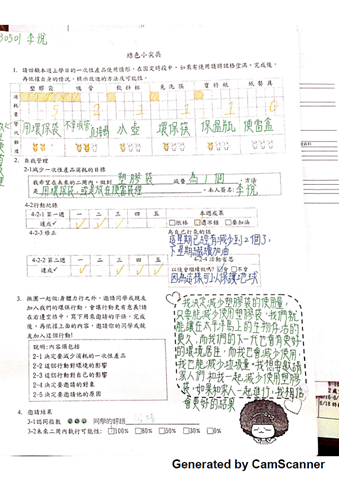 30501 李悅
綠色小尖兵
1. 請回顧本週上學日的一次性產品使用情形，在固定時段中，如果有使用請將請格塗滿，完成後，
再依據自身的情況，標示改進的方法及可能性。
塑膠袋 吸管 飲料杯 免洗筷 寶特瓶 紙餐具
用環保袋 水壺 環保筷 保溫瓶 便當盒
2. 自我管理
2-1減少一次性產品消耗的目標
我希望在未來的二周內，做到 塑膠袋 減量 為1個，方法
是 用環保袋 ，本人簽名：李悅
4-2行動記錄
4-2-1 第一週 一 二 三 四 五 本週成果
達成✓ □很棒 □還不錯 □要加油
4-2-3 修正 為自己打氣的話
這星期已經有減少到2個了，
下星期繼續加油
4-2-2 第二週 一 二 三 四 五 4-2-4 活動省思
達成✓ 以後會繼續做嗎? □會 □不會
因為這樣可以保護地球
3. 揪團一起做：身體力行之外，邀請同學或親友
加入我們的環保行動，會讓行動更有意義！請
在右邊空格中，寫下用來邀請的字條，完成
後，再依據上面的內容，邀請你的同學或親
友加入這個行動！
說明：內容須包括
2-1 決定要減少消耗的一次性產品
2-2 這個行動對環境的影響
2-3 這個行動對自己的影響
2-4 決定要邀請的對象
2-5 決定要邀請他的原因
我決定減少塑膠袋的使用量，
只要能減少使用塑膠袋，我們就
能讓在太平洋島上的生物存活的
更久，而我們的下一代也會有更好
的環境居住，而我也會減少使用，
我已能減少垃圾量，我想要邀請
家人們和我一起減少使用塑膠
袋，如果和家人一起進行，我相信
會更好的結果
4. 邀請結果
3-1認同指數 同學的評語
3-2未來二周內執行可能性：□100% □80% □50% □30% □0%
Generated by CamScanner